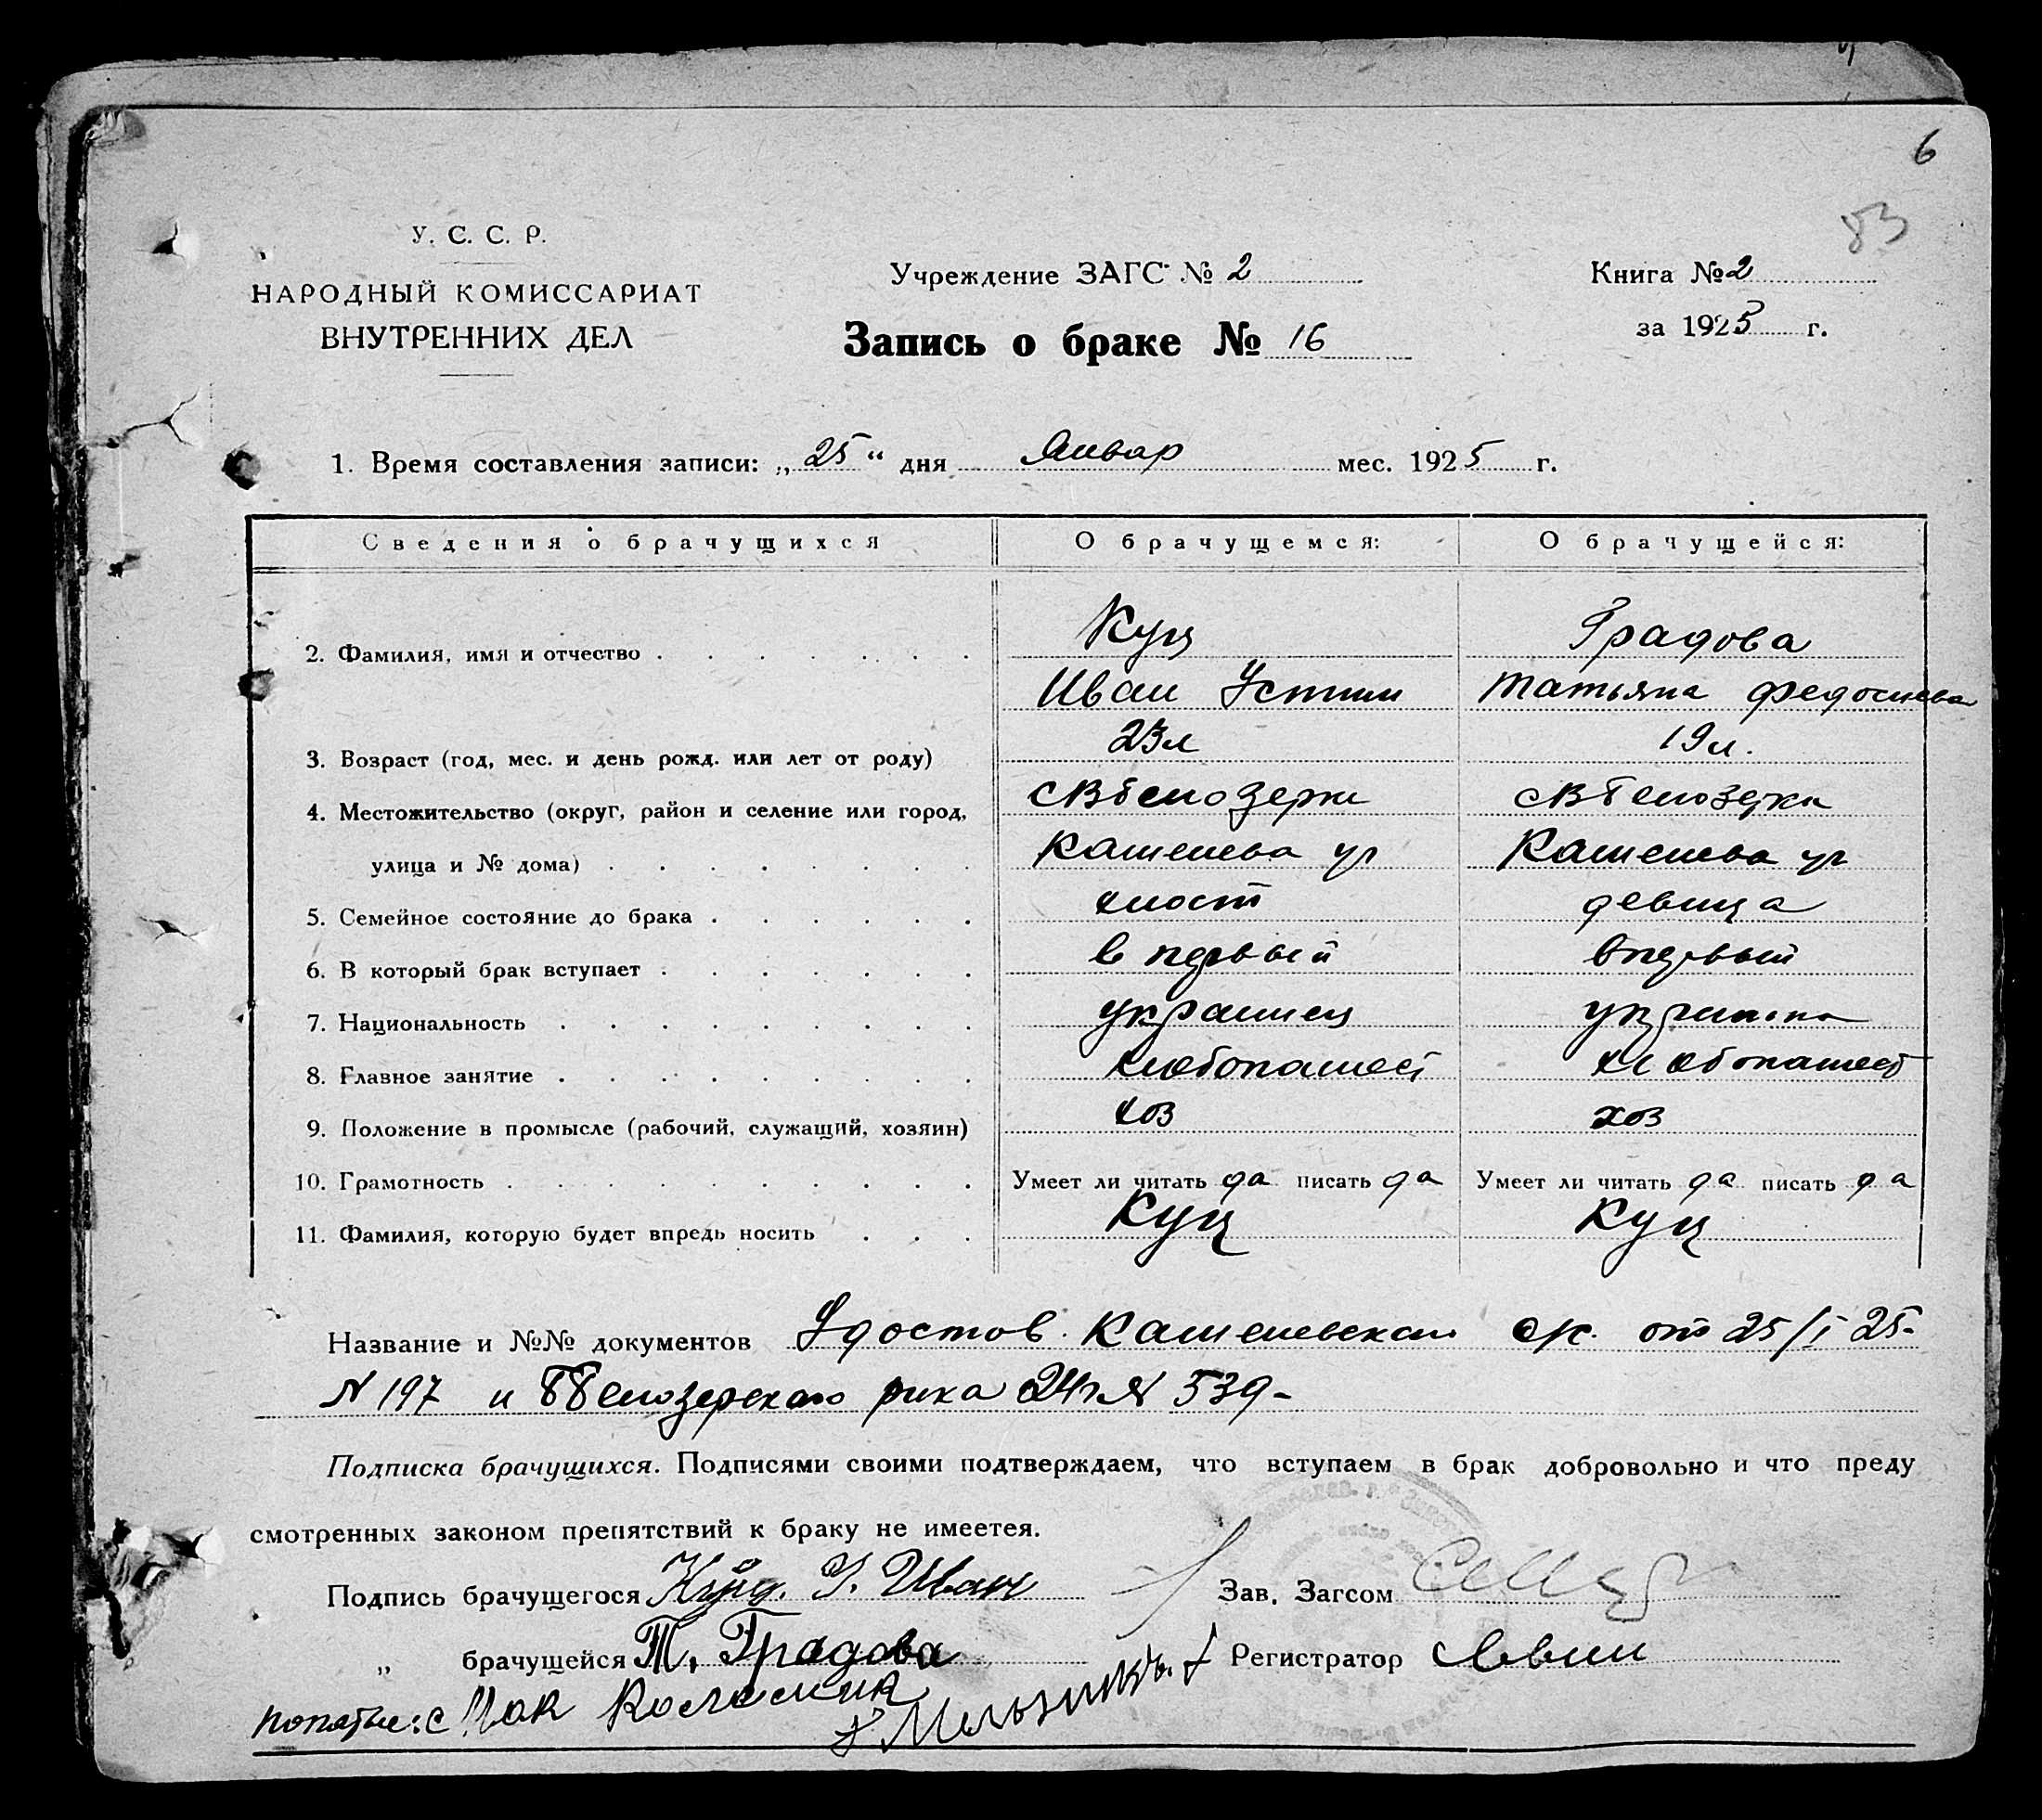 6
83
У. С. С. Р.
НАРОДНЫЙ КОМИССАРИАТ
ВНУТРЕННИХ ДЕЛ
Учреждение ЗАГС № 2
Запись о браке № 16
Книга № 2
за 1925 г.
1. Время составления записи: „25“ дня Январ мес. 1925 г.
Сведения о брачущихся О брачущемся: О брачущейся:
2. Фамилия, имя и отчество Куц Градова
Иван Устим Татьяна Федосиева
3. Возраст (год, мес. и день рожд. или лет от роду) 23л 19л.
4. Местожительство (округ, район и селение или город, с ВБелозерки с ВБелозерки
улица и № дома) Кашенева ул Кашенева ул
5. Семейное состояние до брака холост девица
6. В который брак вступает в первый в первый
7. Национальность украинец украинка
8. Главное занятие хлебопашест хлебопашест
9. Положение в промысле (рабочий, служащий, хозяин) хоз хоз
10. Грамотность Умеет ли читать да писать да Умеет ли читать да писать да
11. Фамилия, которую будет впредь носить Куц Куц
Название и №№ документов Удостов. от 25/I 25-
N 197 и рика N 539-
Подписка брачущихся. Подписями своими подтверждаем, что вступаем в брак добровольно и что преду
смотренных законом препятствий к браку не имеетея.
Подпись брачущегося Куц. У. Иван Зав. Загсом
„ брачущейся Т. Градова Регистратор